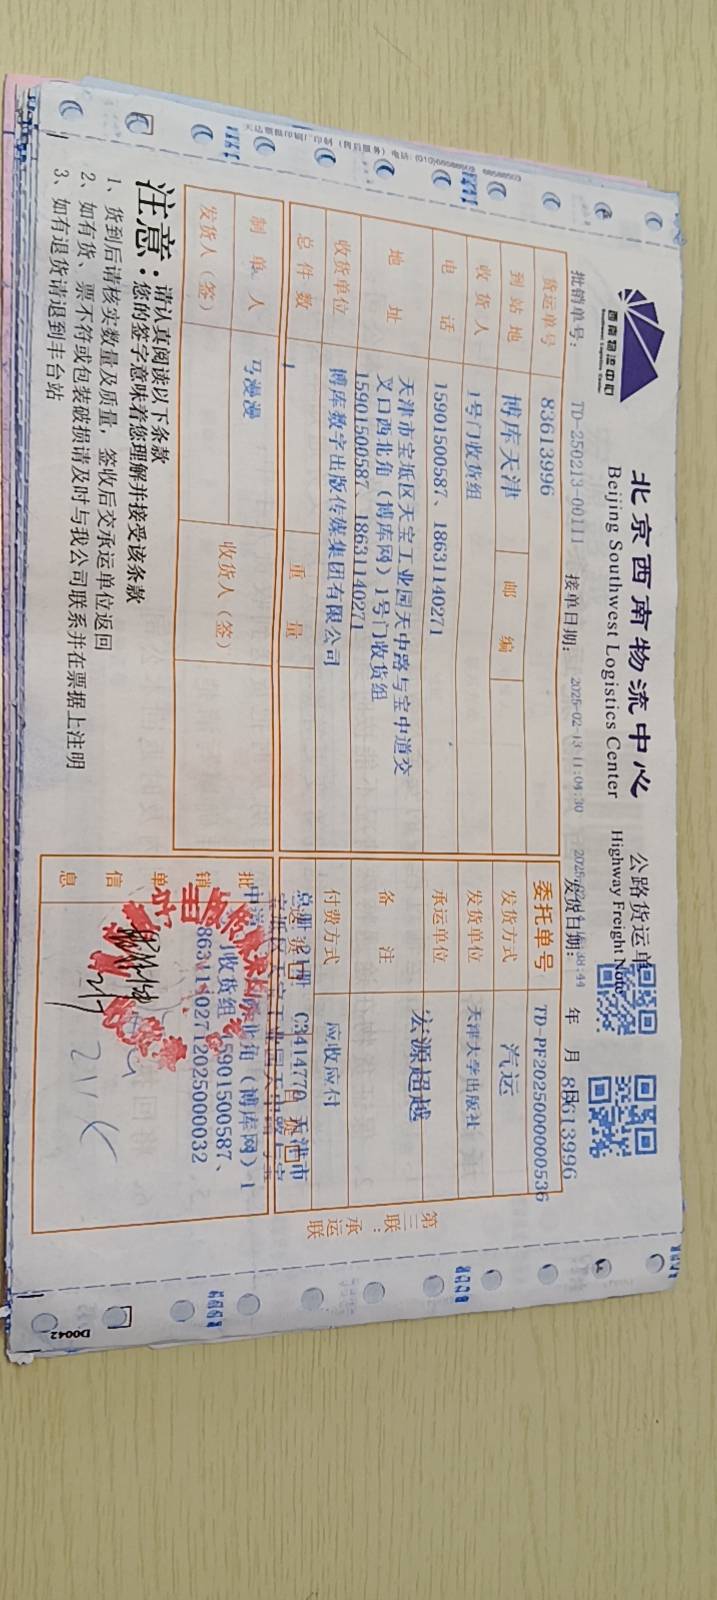 西南物流中心
Southwest Logistics Center
北京西南物流中心
Beijing Southwest Logistics Center
公路货运单
Highway Freight Note
83613996
批销单号：TD-250213-00111 接单日期：2025-02-13 11:04:30 发货日期： 年 月 日
货运单号 83613996
委托单号 TD-PF2025000000536
到站地 博库天津 邮编
发货方式 汽运
收货人 1号门收货组
发货单位 天津大学出版社
电话 15901500587、18631140271
承运单位 宏源超越
地址 天津市宝坻区天宝工业园天中路与宝中道交
叉口西北角（博库网）1号门收货组
15901500587、18631140271
备注
收货单位 博库数字出版传媒集团有限公司
付费方式 应收应付
总件数 1 重量
总册 21册 C3414770 天津市
宝坻区天宝工业园天中路与宝
西北角（博库网）1
收货组 15901500587、
18631140271 2025000032
批销单信息
制单人 马漫漫
发货人（签）
收货人（签）
第三联：承运联
注意：请认真阅读以下条款
您的签字意味着您理解并接受该条款
1、货到后请核实数量及质量，签收后交承运单位返回
2、如有货、票不符或包装破损请及时与我公司联系并在票据上注明
3、如有退货请退到丰台站
D0042